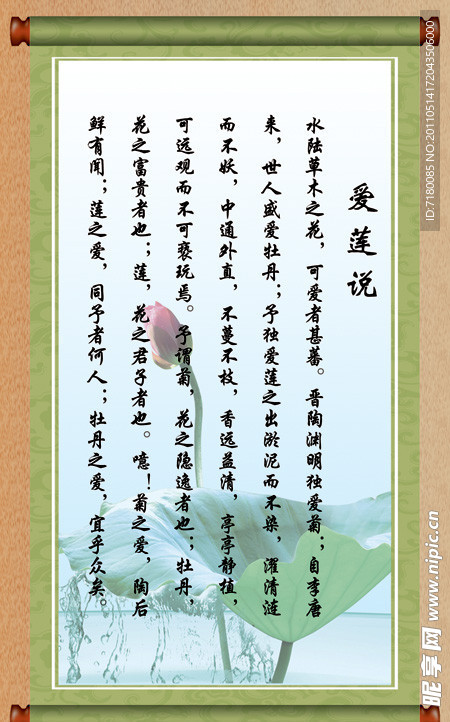 爱莲说
水陆草木之花，可爱者甚蕃。晋陶渊明独爱菊；自李唐
来，世人盛爱牡丹；予独爱莲之出淤泥而不染，濯清涟
而不妖，中通外直，不蔓不枝，香远益清，亭亭静植，
可远观而不可亵玩焉。予谓菊，花之隐逸者也；牡丹，
花之富贵者也；莲，花之君子者也。噫！菊之爱，陶后
鲜有闻；莲之爱，同予者何人；牡丹之爱，宜乎众矣。
ID:7180085 NO:20110514172043506000
昵享网 www.nipic.cn